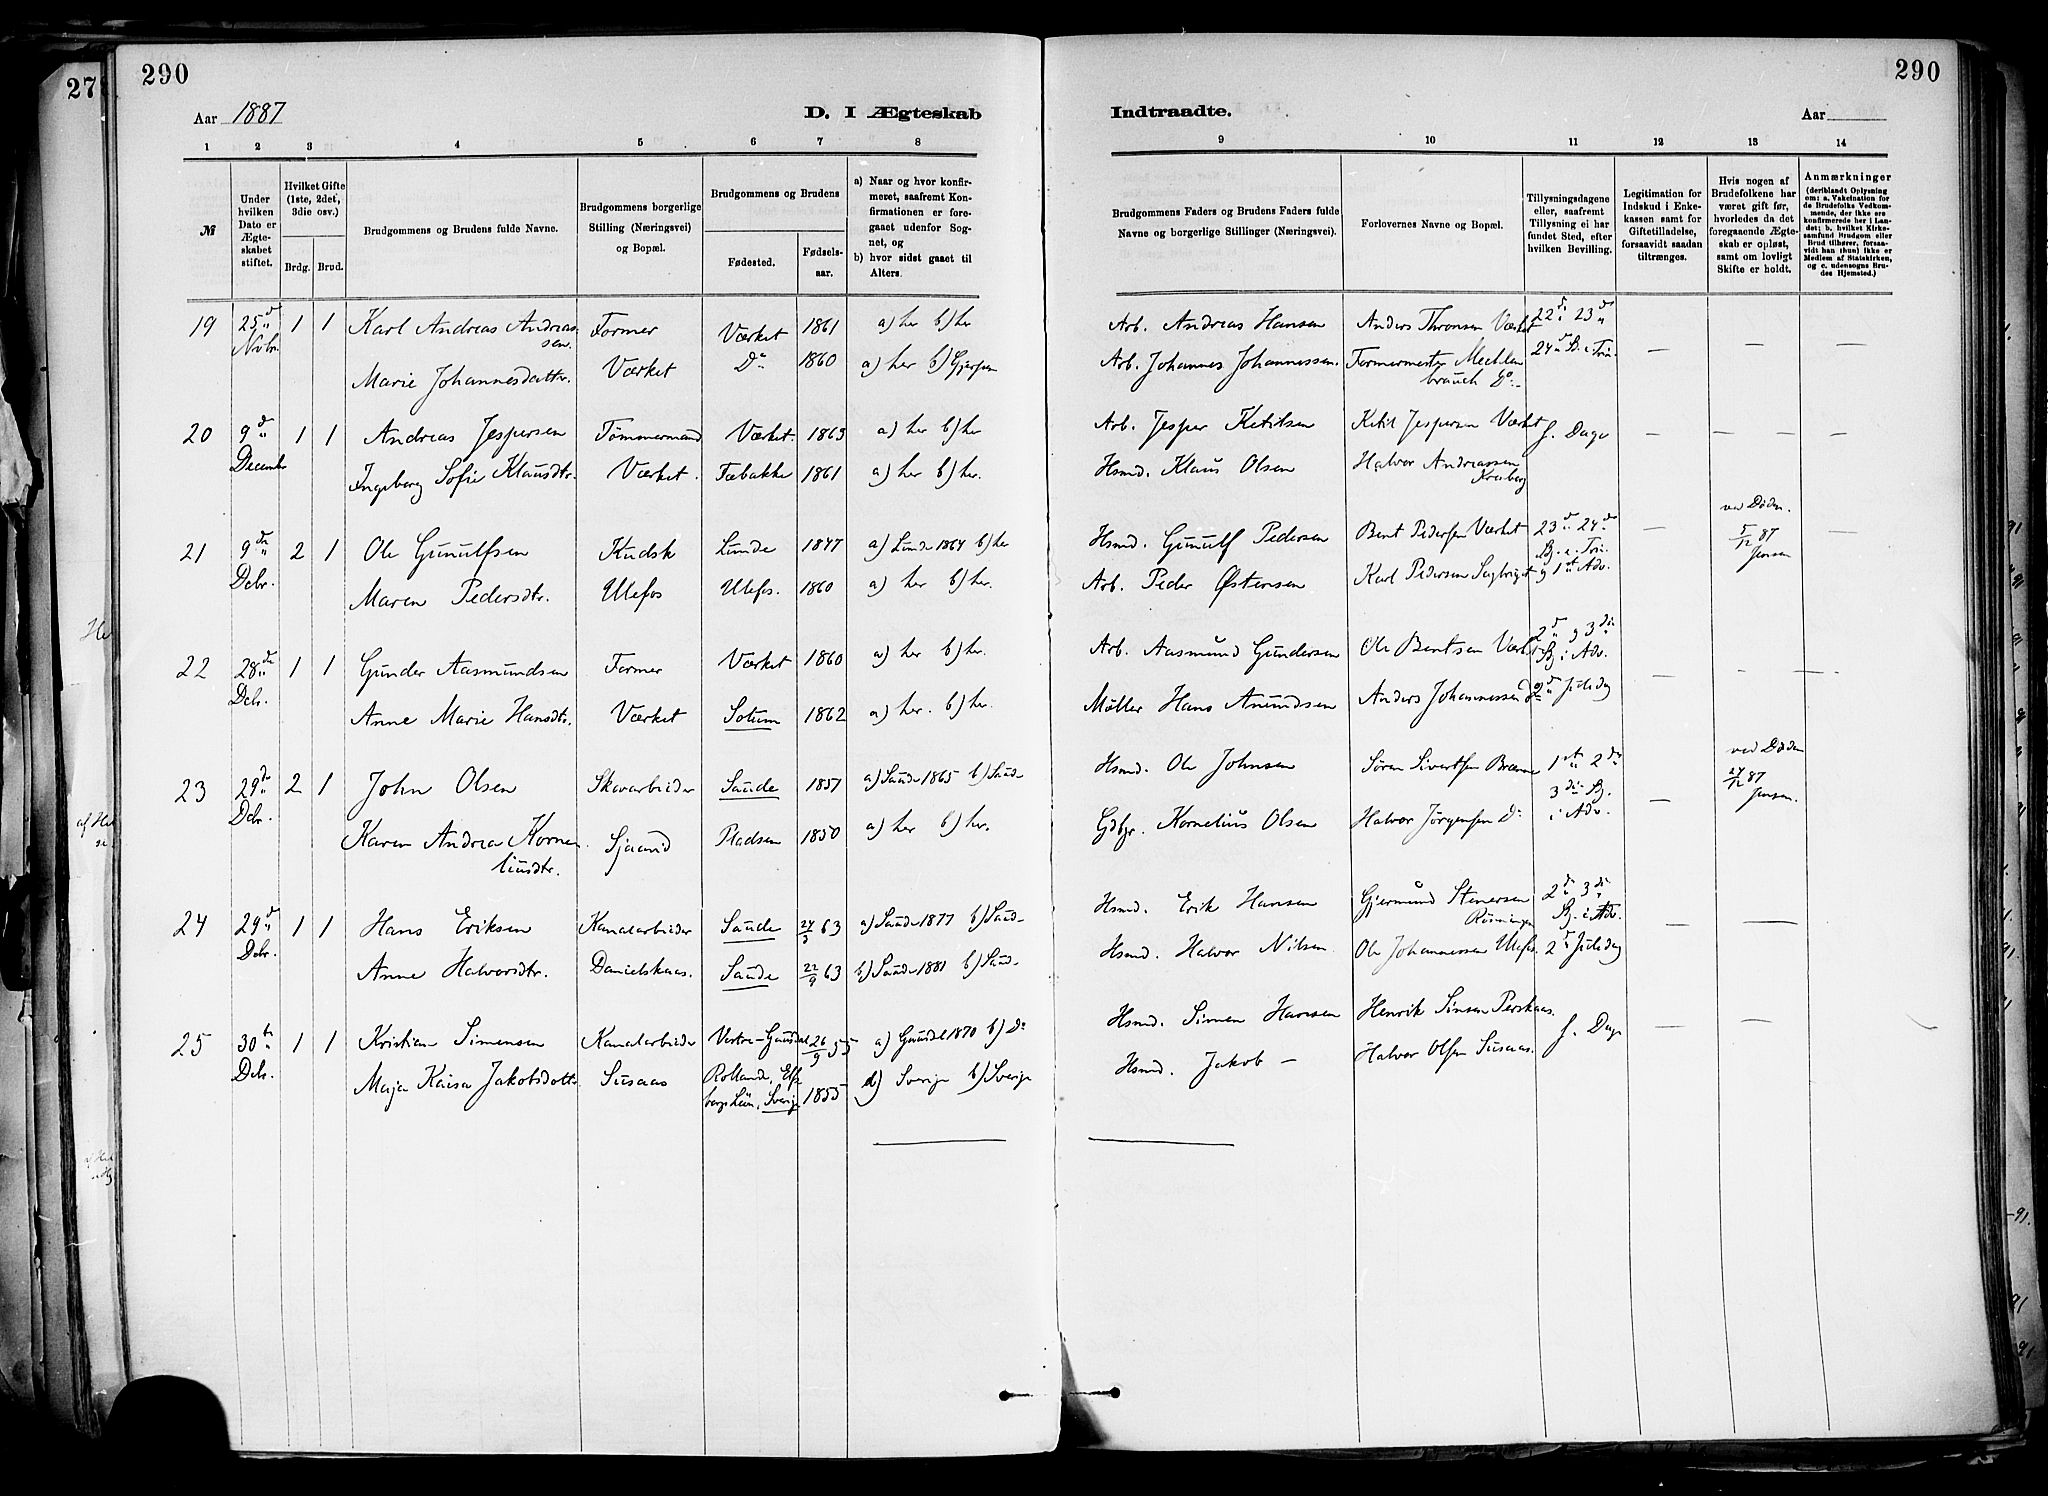 290
Aar 1887
D. I Ægteskab
1 2 3 4 5 6 7 8
№
Under hvilken Dato er Ægteskabet stiftet.
Hvilket Gifte (1ste, 2det, 3die osv.)
Brdg. Brud.
Brudgommens og Brudens fulde Navne.
Brudgommens borgerlige Stilling (Næringsvei) og Bopæl.
Brudgommens og Brudens
Fødested.
Fødselsaar.
a) Naar og hvor konfirmeret, saafremt Konfirmationen er foregaaet udenfor Sognet, og
b) hvor sidst gaaet til Alters.
19 25d Nvbr. 1 1 Karl Andreas Andreassen. Former Værket 1861 a) her b) her
Marie Johannesdattr. Værket Do 1860 a) her b) Gjerpen
20 9d December 1 1 Andreas Jespersen Tømmermand Værket. 1863 a) her b) her
Ingeborg Sofie Klausdtr. Værket. Fæbakke 1861 a) her b) her.
21 9de Dcbr. 2 1 Ole Gunulfsen Kudsk Lunde 1847 a) Lunde 1864 b) her
Maren Pedersdtr. Ulefos Ulefos. 1860 a) her b) her.
22 28de Dcbr. 1 1 Gunder Aasmundsen Former Værket 1860 a) her b) her.
Anne Marie Hansdtr. Værket Sotum 1862 a) her. b) her.
23 29de Dcbr. 2 1 John Olsen Skovarbeider Saude 1851 a) Saude 1865 b) Saude
Karen Andrea Korneliusdtr. Pladsen 1850 a) her b) her.
24 29d Dcbr. 1 1 Hans Eriksen Kanalarbeider Saude 27/3 63 a) Saude 1877 b) Saude
Anne Halvorsdtr. Danielskaas. Saude 22/9 63 b) Saude 1881 b) Saude
25 30te Dcbr. 1 1 Kristian Simensen Kanalarbeider Vestre-Gausdal 26/9 55 a) Gausdal 1870 b) Do
Maja Kaisa Jakobsdottr Susaas Rolland, Elfsborgs Län, Sverige 1855 a) Sverige b) Sverige
290
Indtraadte.
Aar
9 10 11 12 13 14
Brudgommens Faders og Brudens Faders fulde Navne og borgerlige Stillinger (Næringsvei).
Forlovernes Navne og Bopæl.
Tillysningsdagene eller, saafremt Tillysning ei har fundet Sted, efter hvilken Bevilling.
Legitimation for Indskud i Enkekassen samt for Giftetilladelse, forsaavidt saadan tiltrænges.
Hvis nogen af Brudefolkene har været gift før, hvorledes da det foregaaende Ægteskab er opløst, samt om lovligt Skifte er holdt.
Anmærkninger
(deriblandt Oplysning om: a. Vakcination for de Brudefolks Vedkommende, der ikke ere konfirmerede her i Landet; b. hvilket Kirkesamfund Brudgom eller Brud tilhører, forsaavidt han (hun) ikke er Medlem af Statskirken, og c. udensogns Brudes Hjemsted.)
Arb. Andreas Hansen Anders Thronsen Værket 22d 23d
Arb. Johannes Johannessen. Formermester Mechlenbrauch Do 24d S. e. Trin. — — —
Arb. Jesper Ketilsen Ketil Jespersen Værket f. Dage — — —
Hsmd. Klaus Olsen Halvor Andreassen
Hsmd. Gunulf Pedersen Bent Pedersen Værket 23d 24de — ved Døden. 5/12 87 Jensen —
Arb. Peder Østensen Karl Pedersen S. e. Trin. og 1st Adv.
Arb. Aasmund Gundersen Ole Bentsen Værket 2d og 3die S. i Adv.
Møller Hans Amundsen Anders Johannessen Do 2d Juledag — — —
Hsmd. Ole Johnsen Søren Sivertsen 1st 2de ved Døden 27/12 87 Jensen.
Gdbgr. Kornelius Olsen Halvor Jørgensen Do 3die S. i Adv. —
Hsmd. Erik Hansen Gjermund Stenersen Rønningen 2d 3die S. i Adv.
Hsmd. Halvor Nilsen Ole Johannessen Ulefos. 2d Juledag — —
Hsmd. Simen Hansen Henrik Perskaas. f. Dage — —
Hsmd. Jakob — Halvor Olsen Susaas.